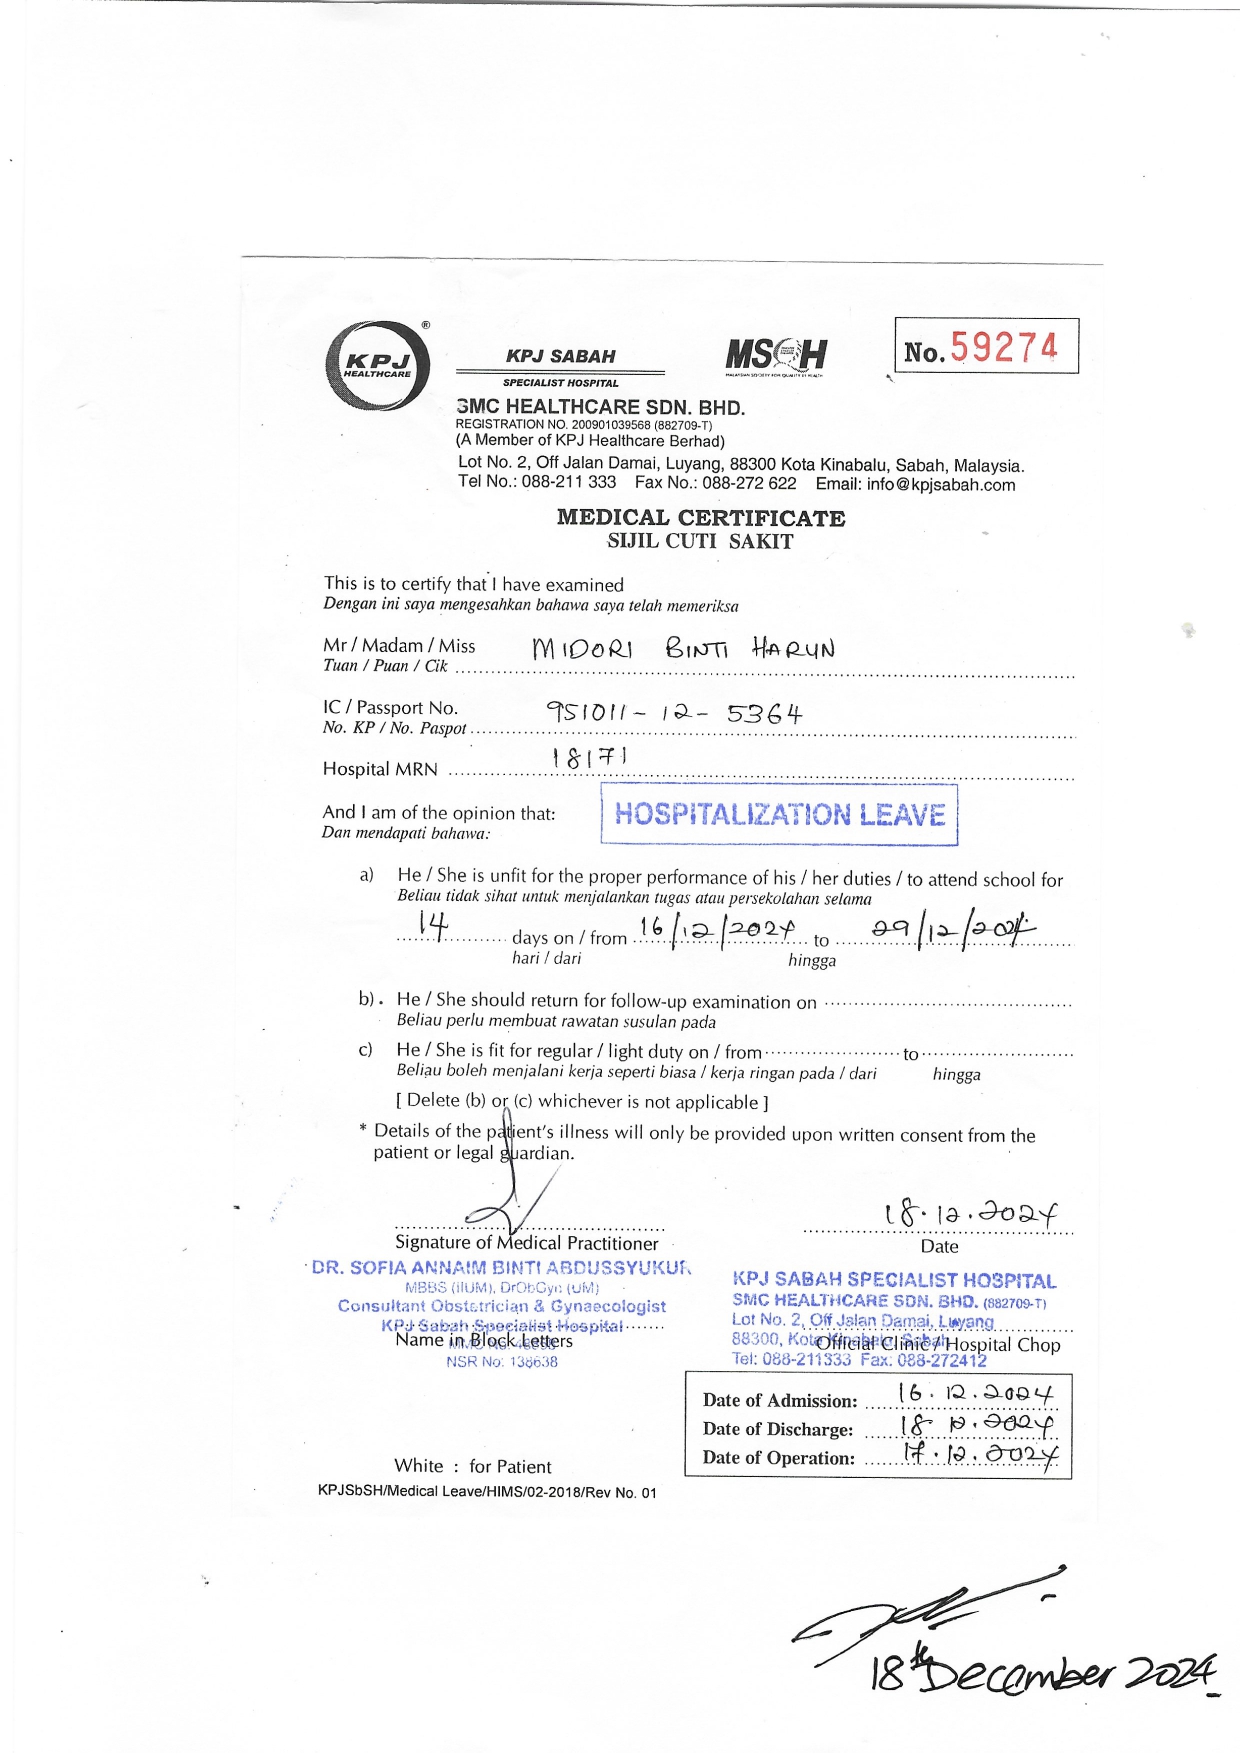 KPJ
HEALTHCARE
®
KPJ SABAH
SPECIALIST HOSPITAL
MSQH
MALAYSIAN SOCIETY FOR QUALITY IN HEALTH
No. 59274
SMC HEALTHCARE SDN. BHD.
REGISTRATION NO. 200901039568 (882709-T)
(A Member of KPJ Healthcare Berhad)
Lot No. 2, Off Jalan Damai, Luyang, 88300 Kota Kinabalu, Sabah, Malaysia.
Tel No.: 088-211 333 Fax No.: 088-272 622 Email: info@kpjsabah.com
MEDICAL CERTIFICATE
SIJIL CUTI SAKIT
This is to certify that I have examined
Dengan ini saya mengesahkan bahawa saya telah memeriksa
Mr / Madam / Miss MIDORI BINTI HARUN
Tuan / Puan / Cik
IC / Passport No. 951011-12-5364
No. KP / No. Paspot
Hospital MRN 18171
And I am of the opinion that: HOSPITALIZATION LEAVE
Dan mendapati bahawa:
a) He / She is unfit for the proper performance of his / her duties / to attend school for
Beliau tidak sihat untuk menjalankan tugas atau persekolahan selama
14 days on / from 16/12/2024 to 29/12/2024
hari / dari hingga
b). He / She should return for follow-up examination on
Beliau perlu membuat rawatan susulan pada
c) He / She is fit for regular / light duty on / from to
Beliau boleh menjalani kerja seperti biasa / kerja ringan pada / dari hingga
[ Delete (b) or (c) whichever is not applicable ]
* Details of the patient's illness will only be provided upon written consent from the
patient or legal guardian.
18.12.2024
Signature of Medical Practitioner Date
DR. SOFIA ANNAIM BINTI ABDUSSYUKUR
MBBS (IIUM), DrObGyn (UM)
Consultant Obstetrician & Gynaecologist
KPJ Sabah Specialist Hospital
Name in Block Letters
NSR No: 138638
KPJ SABAH SPECIALIST HOSPITAL
SMC HEALTHCARE SDN. BHD. (882709-T)
Lot No. 2, Off Jalan Damai, Luyang
88300, Kota Kinabalu, Sabah
Official Clinic / Hospital Chop
Tel: 088-211333 Fax: 088-272412
Date of Admission: 16.12.2024
Date of Discharge: 18.12.2024
Date of Operation: 17.12.2024
White : for Patient
KPJSbSH/Medical Leave/HIMS/02-2018/Rev No. 01
18th December 2024